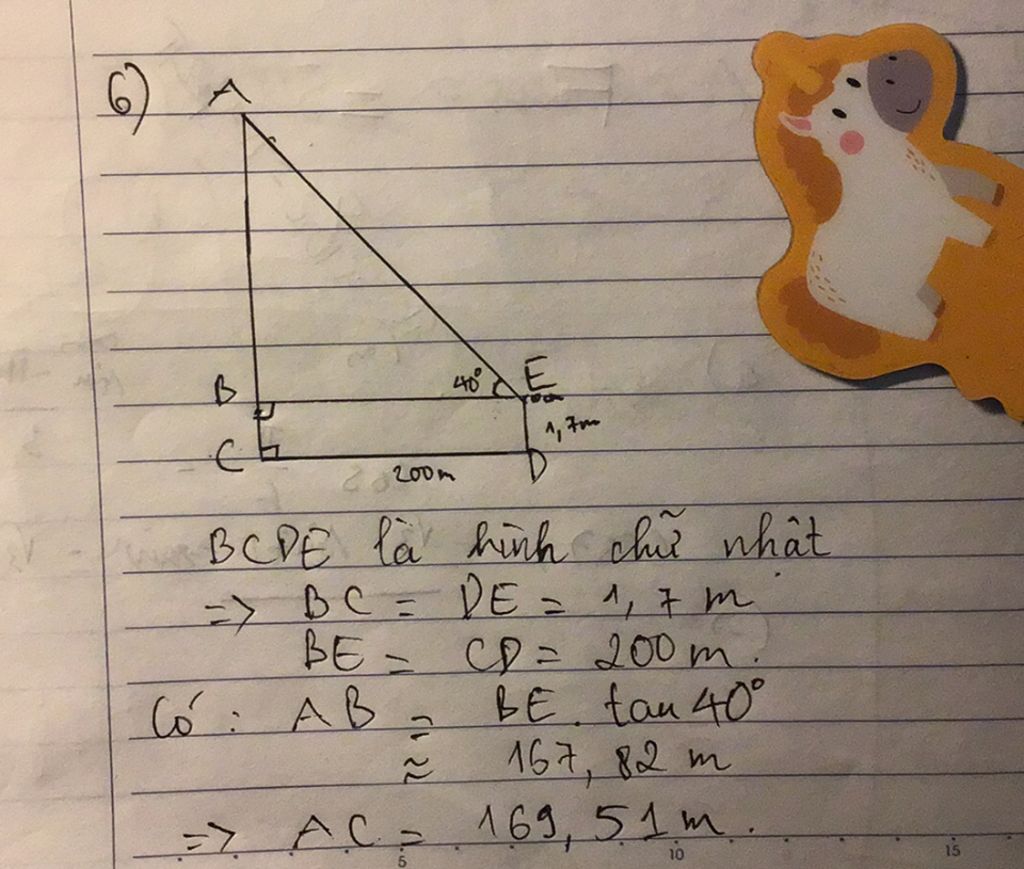 6)
A
B
40°
E
1,7m
C
D
200m
BCDE là hình chữ nhật
=> BC = DE = 1,7 m
BE = CD = 200 m.
Có: AB = BE. tan 40°
≈ 167,82 m
=> AC = 169,51 m.
5 10 15